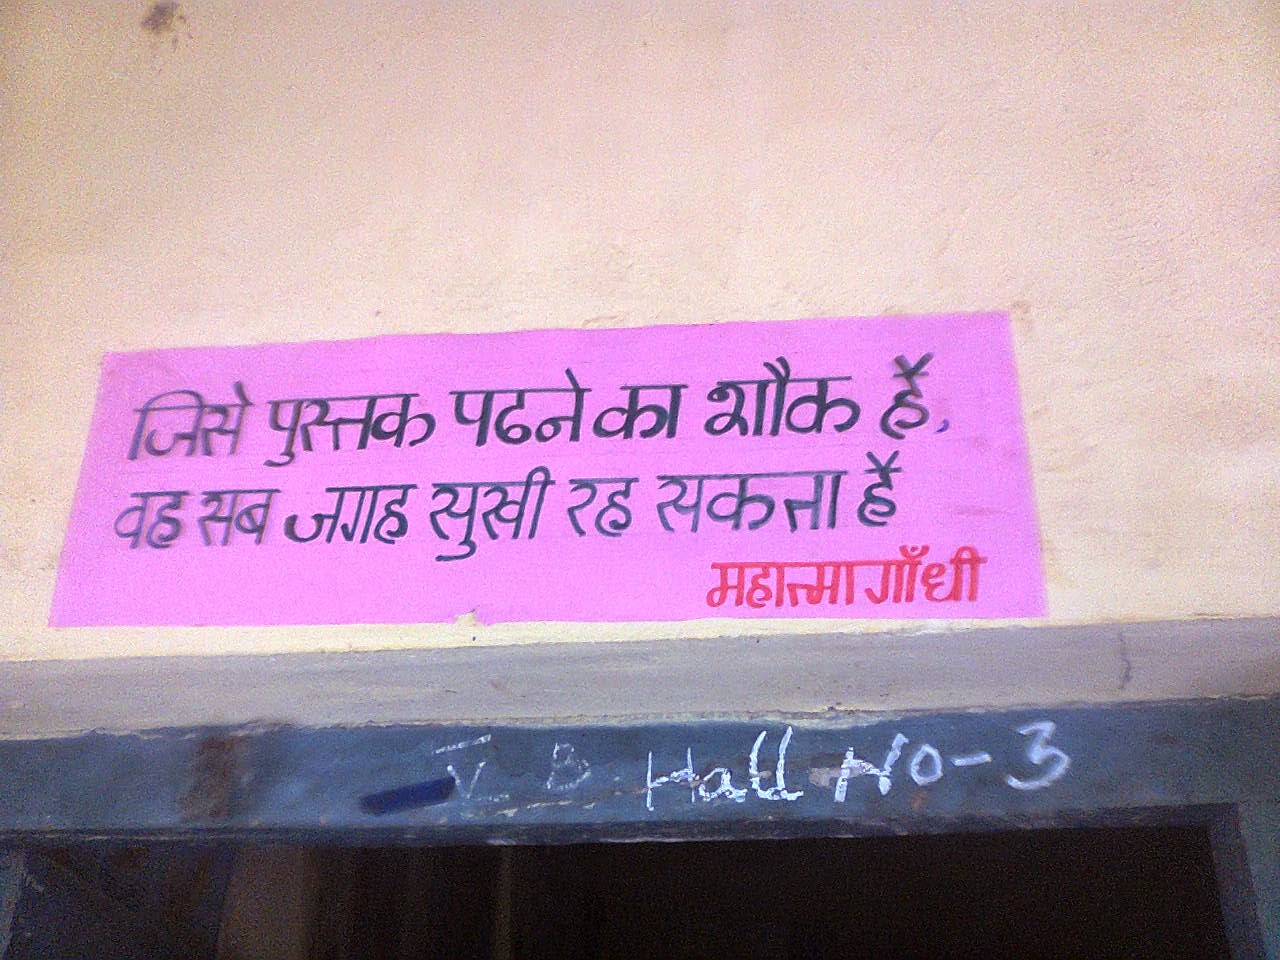 जिसे पुस्तक पढने का शौक है,
वह सब जगह सुखी रह सकता है
महात्मा गाँधी
V B Hall No-3